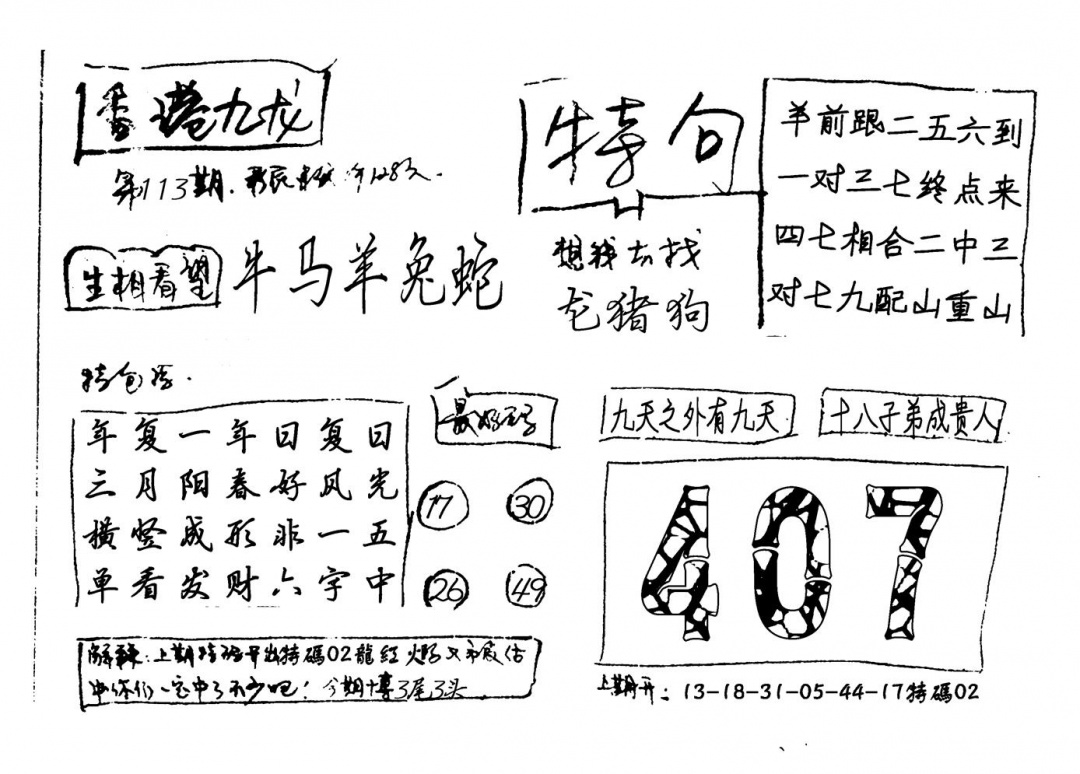 香港九龙
第113期.
生相看望
牛马羊兔蛇
特句
想我去找
龙猪狗
羊前跟二五六到
一对三七终点来
四七相合二中三
对七九配山重山
特包
年复一年日复日
三月阳春好风光
横竖成形非一五
单看发财六字中
最好玉
17
30
26
49
九天之外有九天
十八子弟成贵人
407
解释：上期特 早出特碼02龍紅 又 估
中你们一定中了不少吧！今期博3尾3头
上期开：13-18-31-05-44-17特碼02